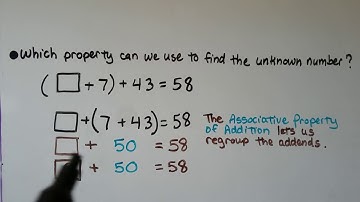 •Which property can we use to find the unknown number?
(□ + 7) + 43 = 58
□ + (7 + 43) = 58
The Associative Property
of Addition lets us
regroup the addends.
□ + 50 = 58
□ + 50 = 58